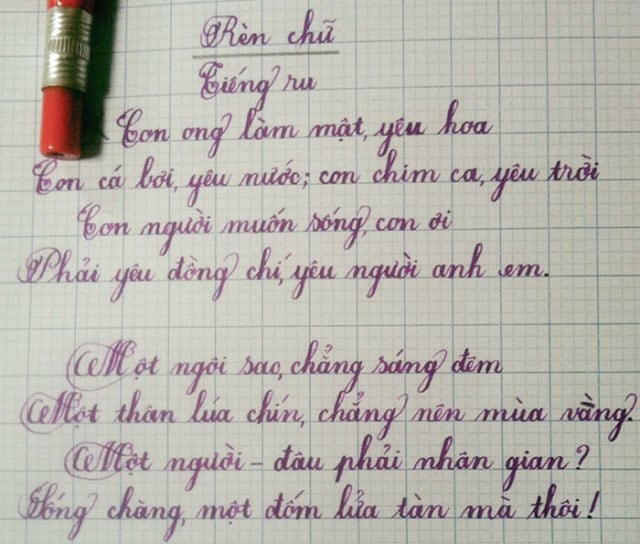 Rèn chữ
Tiếng ru
Con ong làm mật, yêu hoa
Con cá bơi, yêu nước; con chim ca, yêu trời
Con người muốn sống, con ơi
Phải yêu đồng chí, yêu người anh em.
Một ngôi sao, chẳng sáng đêm
Một thân lúa chín, chẳng nên mùa vàng.
Một người - đâu phải nhân gian?
Sống chăng, một đốm lửa tàn mà thôi!